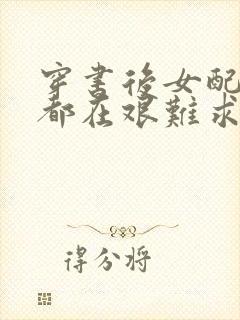 穿書後女配
都在艱難求
得分將